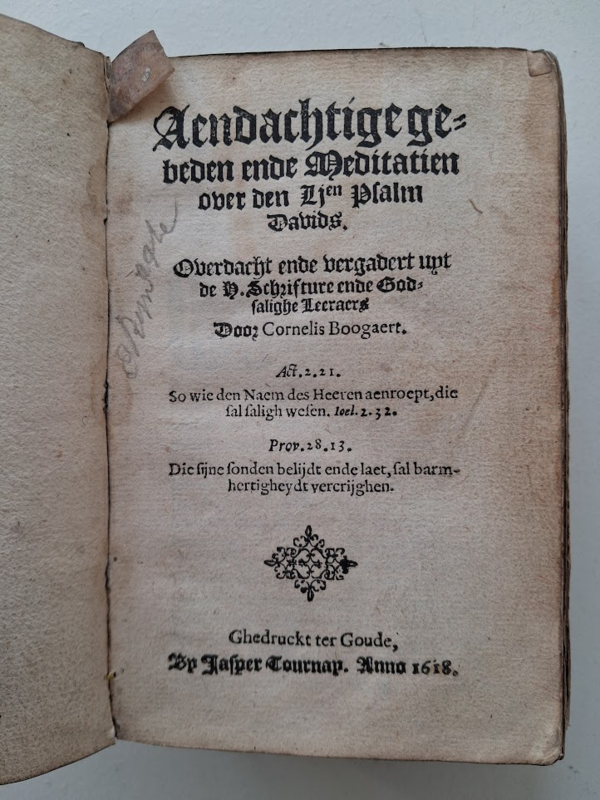 Aendachtige ge-
beden ende Meditatien
over den Ljen Psalm
Davids.
Overdacht ende vergadert uyt
de H. Schrifture ende God-
salighe Leeraers
Door Cornelis Boogaert.
Act. 2. 21.
So wie den Naem des Heeren aenroept, die
sal saligh wesen. Ioel. 2. 32.
Prov. 28. 13.
Die sijne sonden belijdt ende laet, sal barm-
hertigheydt vercrijghen.
Ghedruckt ter Goude,
By Jasper Tournay. Anno 1618.